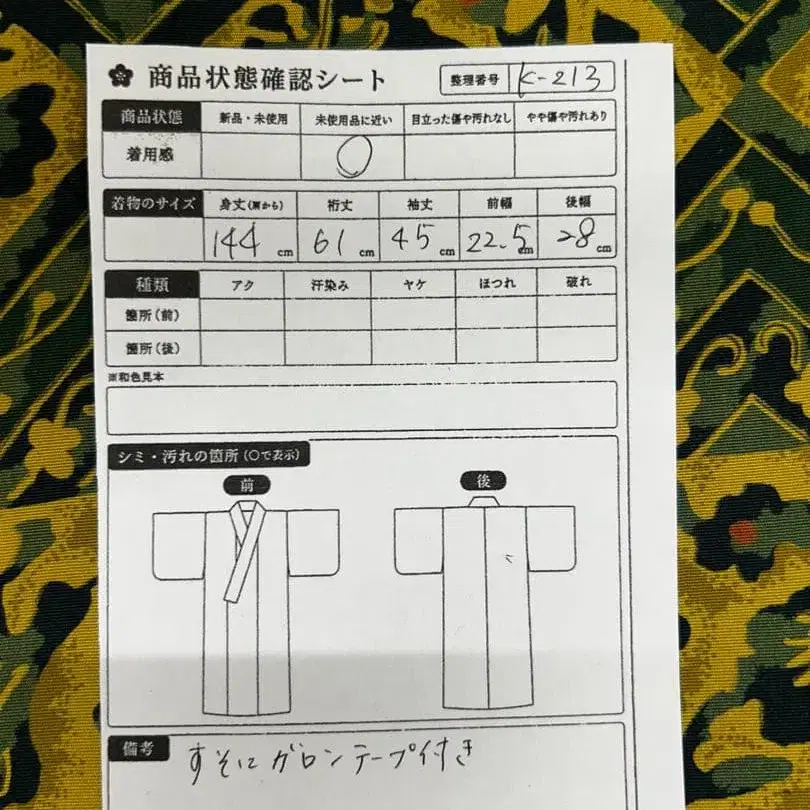 商品状態確認シート 整理番号 K-213
商品状態 新品・未使用 未使用品に近い 目立った傷や汚れなし やや傷や汚れあり
着用感 〇
着物のサイズ 身丈(肩から) 裄丈 袖丈 前幅 後幅
144cm 61cm 45cm 22.5cm 28cm
種類 アク 汗染み ヤケ ほつれ 破れ
箇所(前)
箇所(後)
※和色見本
シミ・汚れの箇所(〇で表示)
前 後
備考 すそにガロンテープ付き